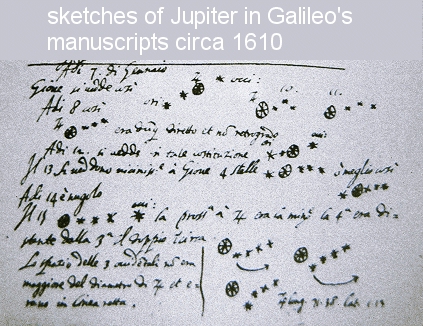 sketches of Jupiter in Galileo's
manuscripts circa 1610
Adi 7. di Gennaio
Gione si vede così
Adi 8 così
ori:
occ:
10.
11.
era dunq diretto et nõ retrogrado
Adi 12. si vedde in tale costitutione
Il 13 si veddono vicinissimi à Gione 4 stelle
ò meglio così
Adi 14 è nugolo
Il 15
occ:
la prossa à 4 era la mina la 4a era di-
stante dalla 3a il doppio circa
Lo spatio delle 3 occidentali nõ era
maggiore del diametro di 4 et e-
rano in linea retta.